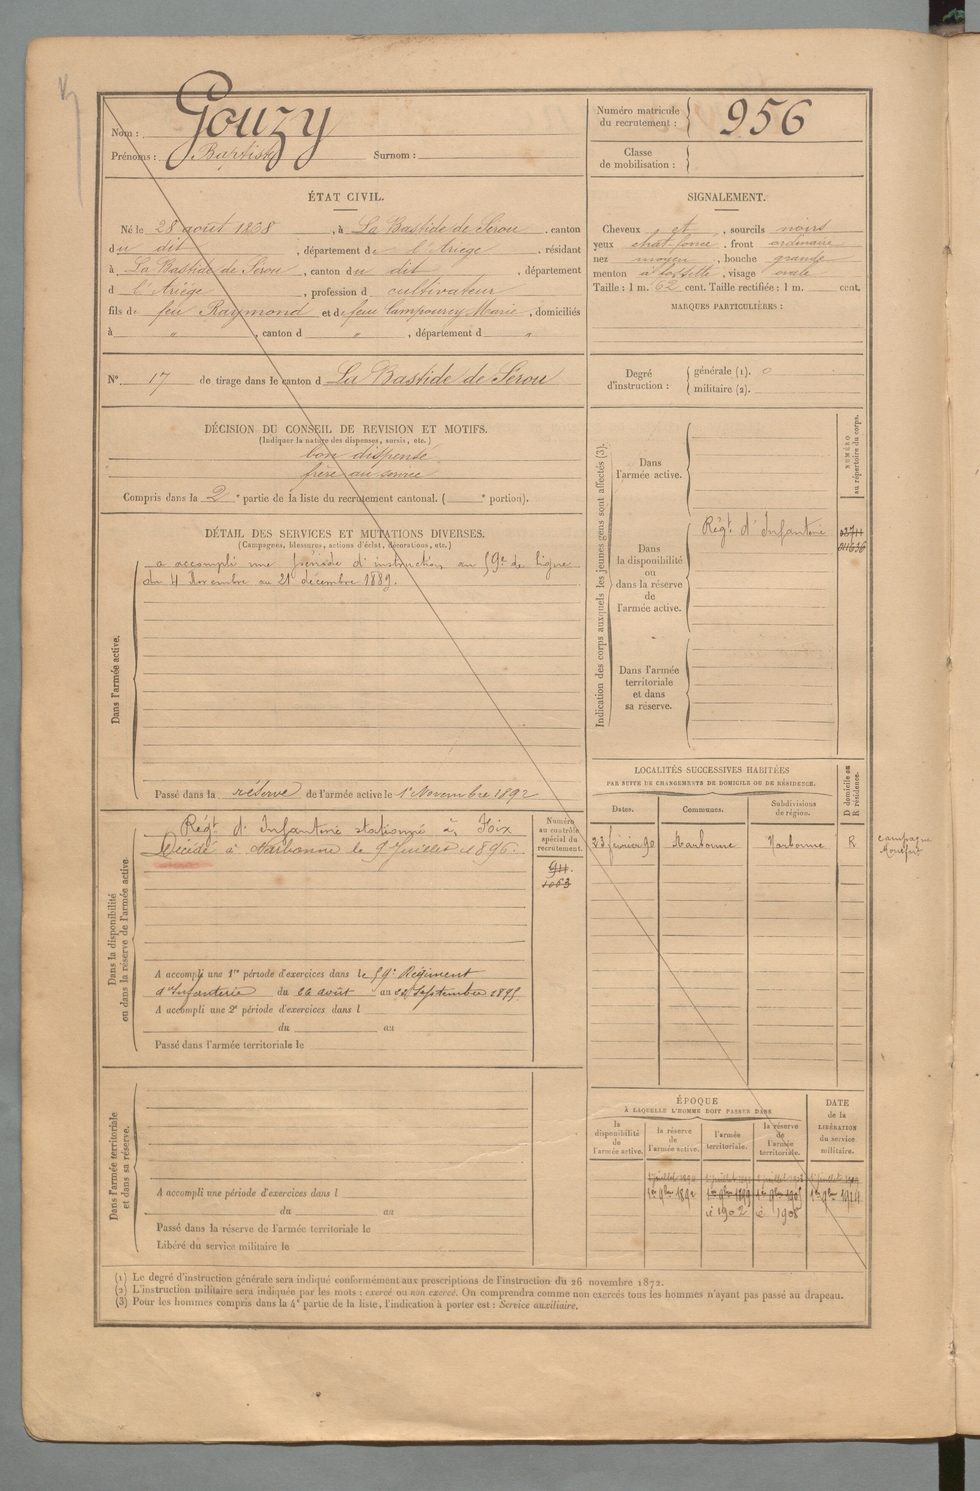 Nom : Gouzy
Prénoms : Baptiste Surnom :
Numéro matricule du recrutement : 956
Classe de mobilisation :
ÉTAT CIVIL.
Né le 28 août 1868, à La Bastide de Sérou, canton
du dit, département de l'Ariège, résidant
à La Bastide de Sérou, canton du dit, département
d l'Ariège, profession d cultivateur
fils de feu Raymond et de feue Campourcy Marie, domiciliés
à " , canton d " , département d "
N° 17 de tirage dans le canton d La Bastide de Sérou
SIGNALEMENT.
Cheveux et , sourcils noirs
yeux chat. foncé , front ordinaire
nez moyen , bouche grande
menton à fossette , visage ovale
Taille : 1 m. 62 cent. Taille rectifiée : 1 m. cent.
MARQUES PARTICULIÈRES :
Degré d'instruction : générale (1). 0
militaire (2).
DÉCISION DU CONSEIL DE REVISION ET MOTIFS.
(Indiquer la nature des dispenses, sursis, etc.)
bon dispensé
frère au service
Compris dans la 2e partie de la liste du recrutement cantonal. ( e portion).
DÉTAIL DES SERVICES ET MUTATIONS DIVERSES.
(Campagnes, blessures, actions d'éclat, décorations, etc.)
Dans l'armée active.
a accompli une période d'instruction au 59e de ligne
du 4 Novembre au 21 décembre 1889.
Passé dans la réserve de l'armée active le 1er Novembre 1892
Indication des corps auxquels les jeunes gens sont affectés (3).
NUMÉRO au répertoire du corps.
Dans l'armée active.
Dans la disponibilité ou dans la réserve de l'armée active.
Régt d'Infanterie
Dans l'armée territoriale et dans sa réserve.
Dans la disponibilité ou dans la réserve de l'armée active.
Régt d'Infanterie stationné à Foix
Décédé à Narbonne le 9 Juillet 1896.
Numéro au contrôle spécial du recrutement.
911.
1063
A accompli une 1re période d'exercices dans le 59e Régiment
d'Infanterie du 26 août au 22 Septembre 1895
A accompli une 2e période d'exercices dans l
du au
Passé dans l'armée territoriale le
LOCALITÉS SUCCESSIVES HABITÉES
PAR SUITE DE CHANGEMENTS DE DOMICILE OU DE RÉSIDENCE.
Dates. Communes. Subdivisions de région. D domicile ou R résidence.
23 février 90 Narbonne Narbonne R campagne
Dans l'armée territoriale et dans sa réserve.
A accompli une période d'exercices dans l
du au
Passé dans la réserve de l'armée territoriale le
Libéré du service militaire le
ÉPOQUE
À LAQUELLE L'HOMME DOIT PASSER DANS
la disponibilité de l'armée active. la réserve de l'armée active. l'armée territoriale. la réserve de l'armée territoriale. DATE de la LIBÉRATION du service militaire.
1er 9bre 1892 1er 9bre 1899 1er 9bre 1905 1er 9bre 1914
1902 1908
(1) Le degré d'instruction générale sera indiqué conformément aux prescriptions de l'instruction du 26 novembre 1872.
(2) L'instruction militaire sera indiquée par les mots : exercé ou non exercé. On comprendra comme non exercés tous les hommes n'ayant pas passé au drapeau.
(3) Pour les hommes compris dans la 4e partie de la liste, l'indication à porter est : Service auxiliaire.